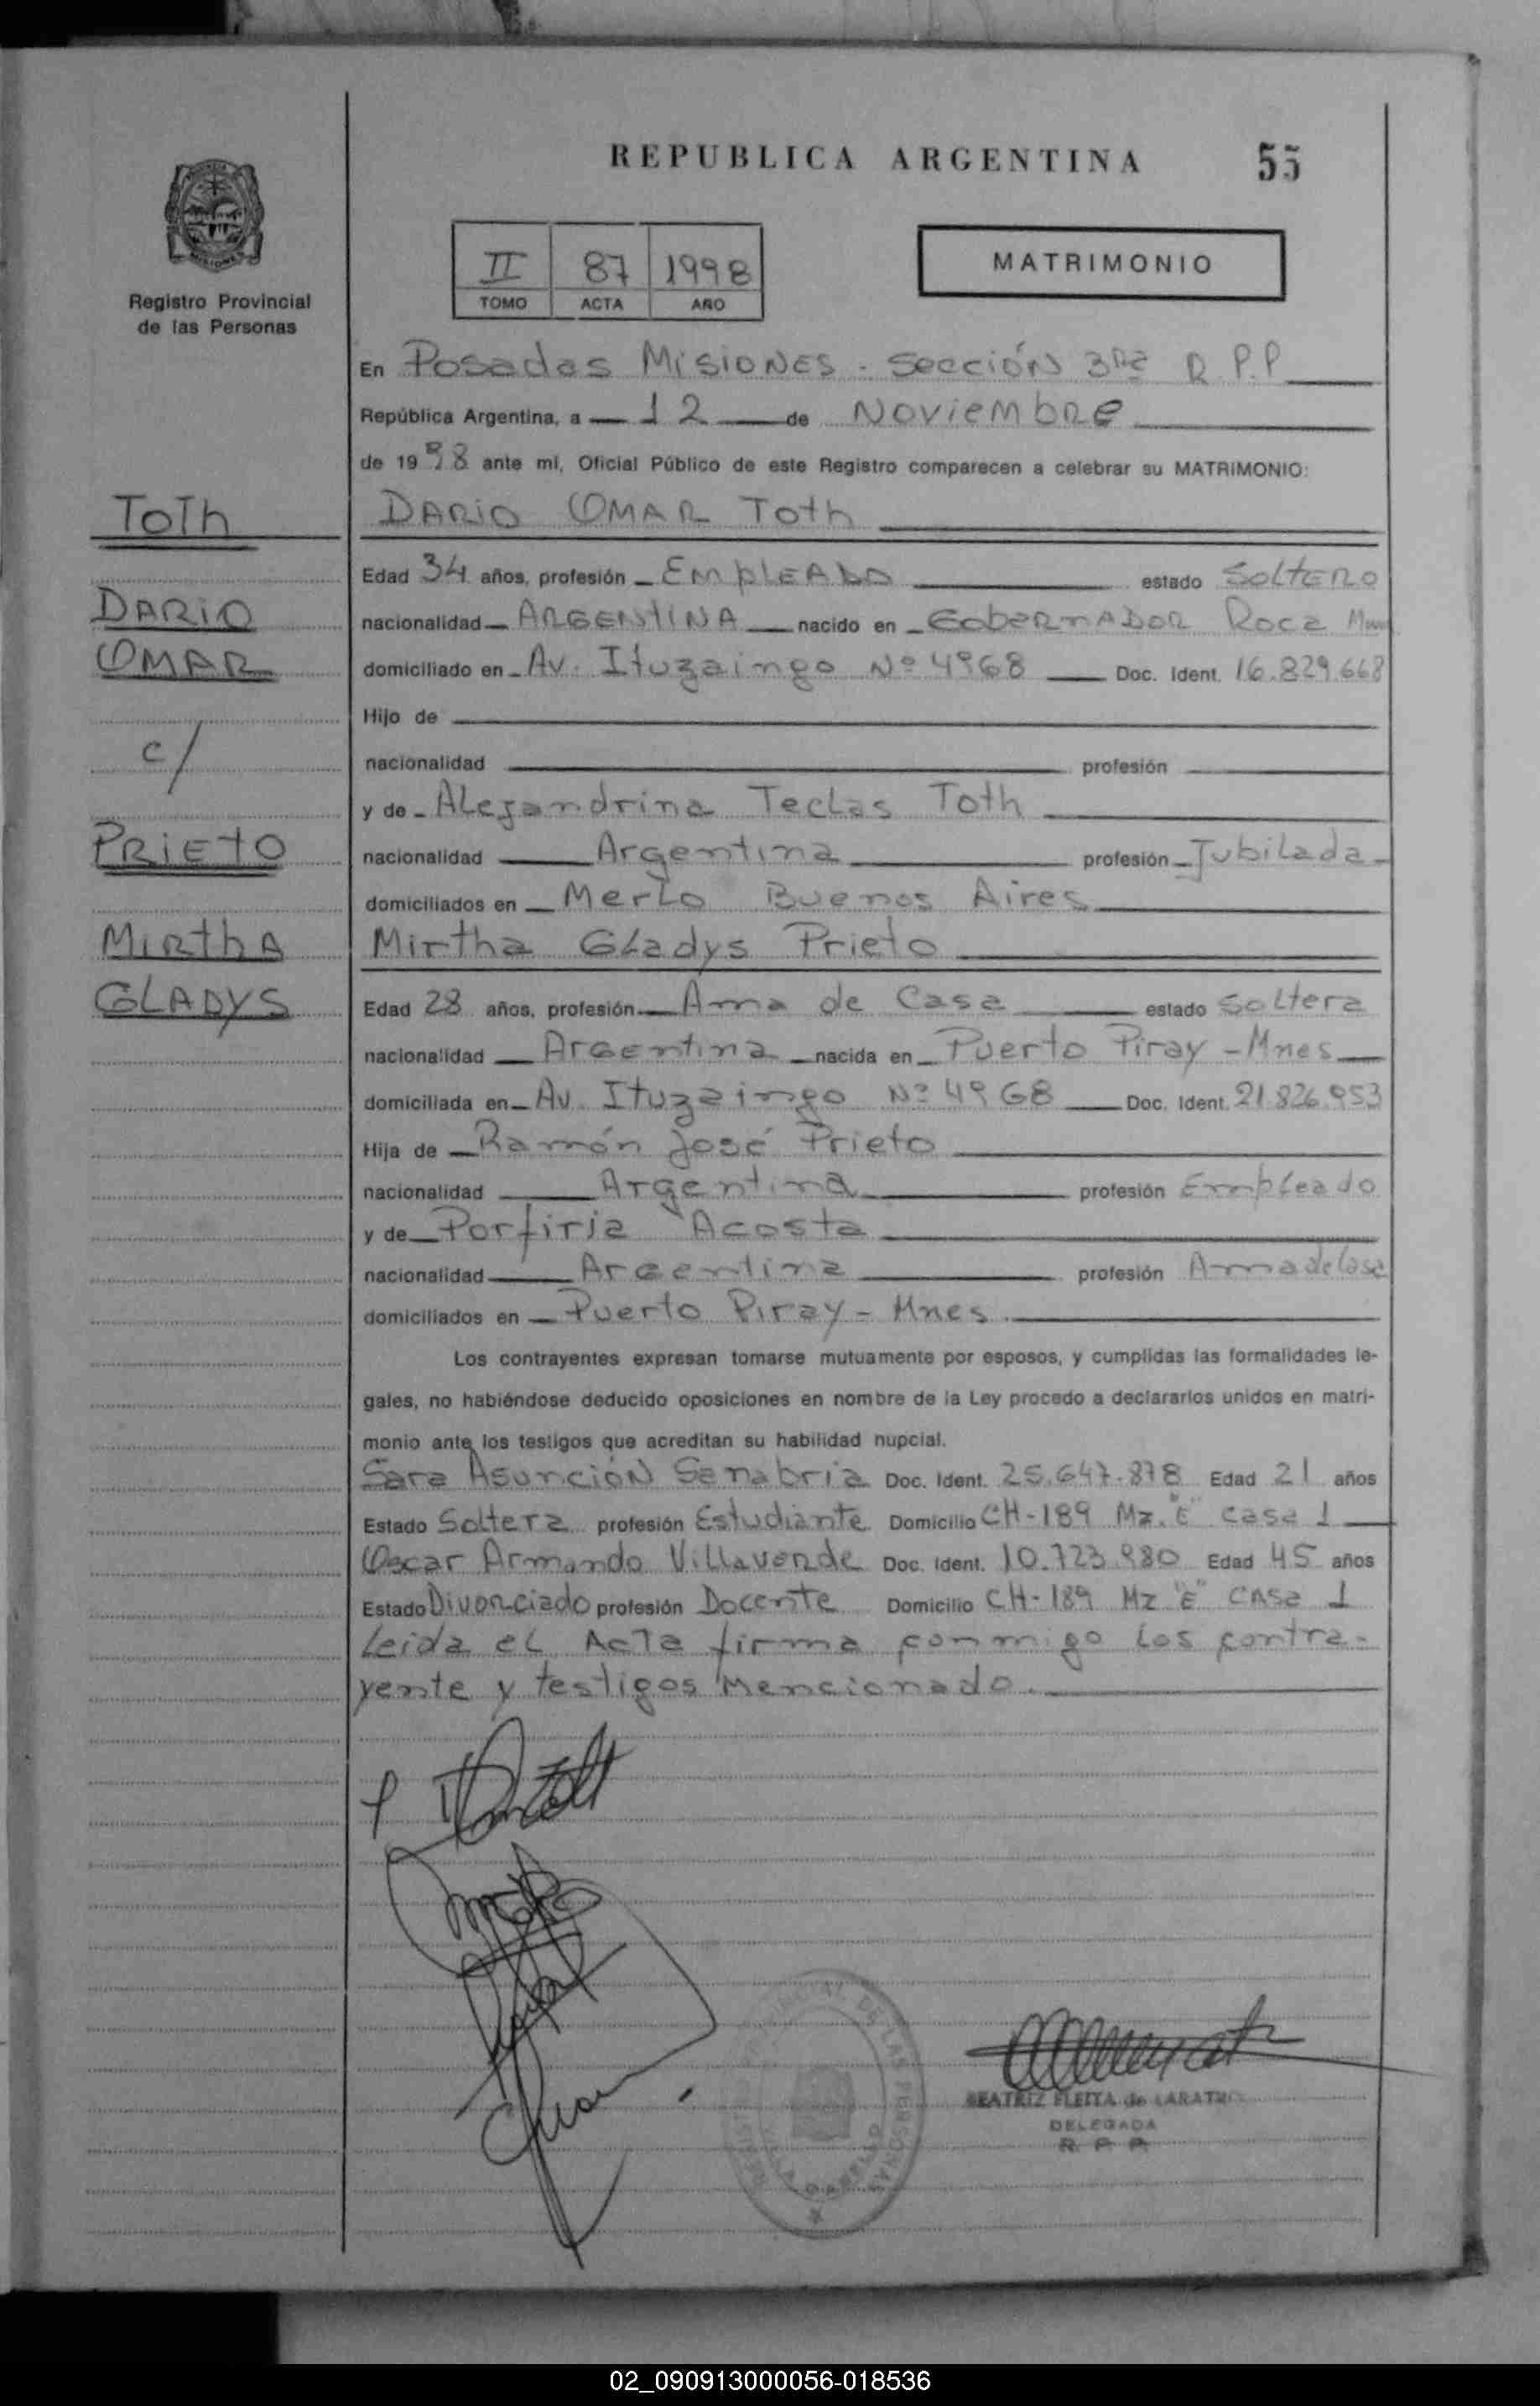 REPUBLICA ARGENTINA
55
Registro Provincial
de las Personas
II 87 1998
TOMO ACTA AÑO
MATRIMONIO
En Posadas Misiones - Sección 3ra R.P.P
República Argentina, a 12 de Noviembre
de 1998 ante mí, Oficial Público de este Registro comparecen a celebrar su MATRIMONIO:
Toth
DARIO
OMAR
c/
PRIETO
MIRthA
GLADYS
DARIO OMAR Toth
Edad 34 años, profesión EmpLEADO estado SoltERO
nacionalidad ARGENtINA nacido en GobERnADOR Roca
domiciliado en Av. Ituzaingo Nº 4968 Doc. Ident. 16.829.668
Hijo de
nacionalidad profesión
y de Alejandrina Teclas Toth
nacionalidad Argentina profesión Jubilada
domiciliados en Merlo Buenos Aires
Mirtha Gladys Prieto
Edad 28 años, profesión Ama de Casa estado Soltera
nacionalidad Argentina nacida en Puerto Piray - Mnes
domiciliada en Av. Ituzaingo Nº 4968 Doc. Ident. 21.826.953
Hija de Ramón José Prieto
nacionalidad Argentina profesión Empleado
y de Porfiria Acosta
nacionalidad Argentina profesión Ama de Casa
domiciliados en Puerto Piray - Mnes
Los contrayentes expresan tomarse mutuamente por esposos, y cumplidas las formalidades le-
gales, no habiéndose deducido oposiciones en nombre de la Ley procedo a declararlos unidos en matri-
monio ante los testigos que acreditan su habilidad nupcial.
Sara Asunción Sanabria Doc. Ident. 25.647.878 Edad 21 años
Estado Soltera profesión Estudiante Domicilio CH-189 Mz. "E" Casa 1
Oscar Armando Villaverde Doc. Ident. 10.723.980 Edad 45 años
Estado Divorciado profesión Docente Domicilio CH-189 Mz "E" Casa 1
Leida el Acta firma conmigo los contra-
yente y testigos Mencionado.
BEATRIZ FLEITA de
DELEGADA
R. P. P.
02_090913000056-018536